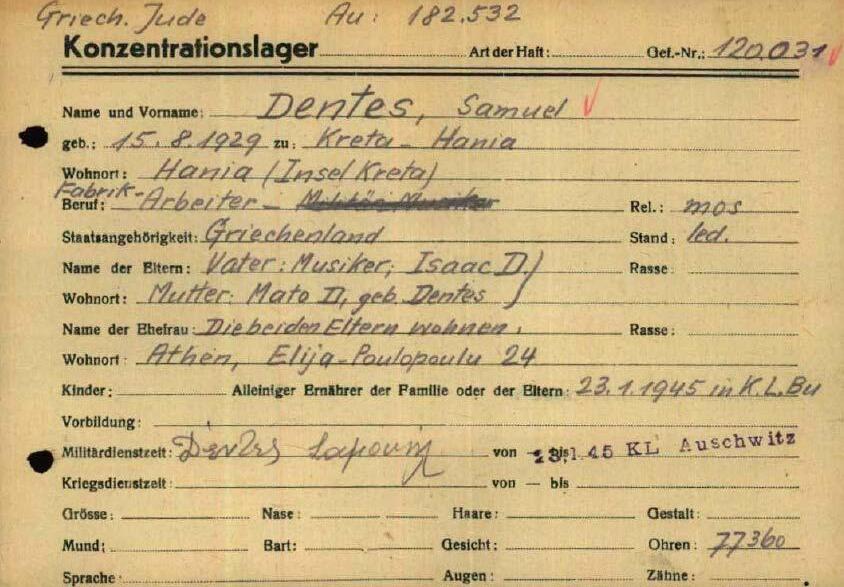 Griech. Jude Au: 182.532
Konzentrationslager Art der Haft: Gef.-Nr.: 120.031
Name und Vorname: Dentes, Samuel
geb.: 15.8.1929 zu: Kreta - Hania
Wohnort: Hania (Insel Kreta)
Fabrik-
Beruf: Arbeiter - Rel.: mos
Staatsangehörigkeit: Griechenland Stand: led.
Name der Eltern: Vater: Musiker, Isaac D. Rasse:
Wohnort: Mutter: Mato D, geb. Dentes
Name der Ehefrau: Die beiden Eltern wohnen. Rasse:
Wohnort: Athen, Elija-Poulopoulu 24
Kinder: Alleiniger Ernährer der Familie oder der Eltern: 23.1.1945 in K.L. Bu
Vorbildung:
Militärdienstzeit: von — bis 23.1.45 KL Auschwitz
Kriegsdienstzeit: von — bis
Grösse: Nase: Haare: Gestalt:
Mund: Bart: Gesicht: Ohren: 77360
Sprache: Augen: Zähne: